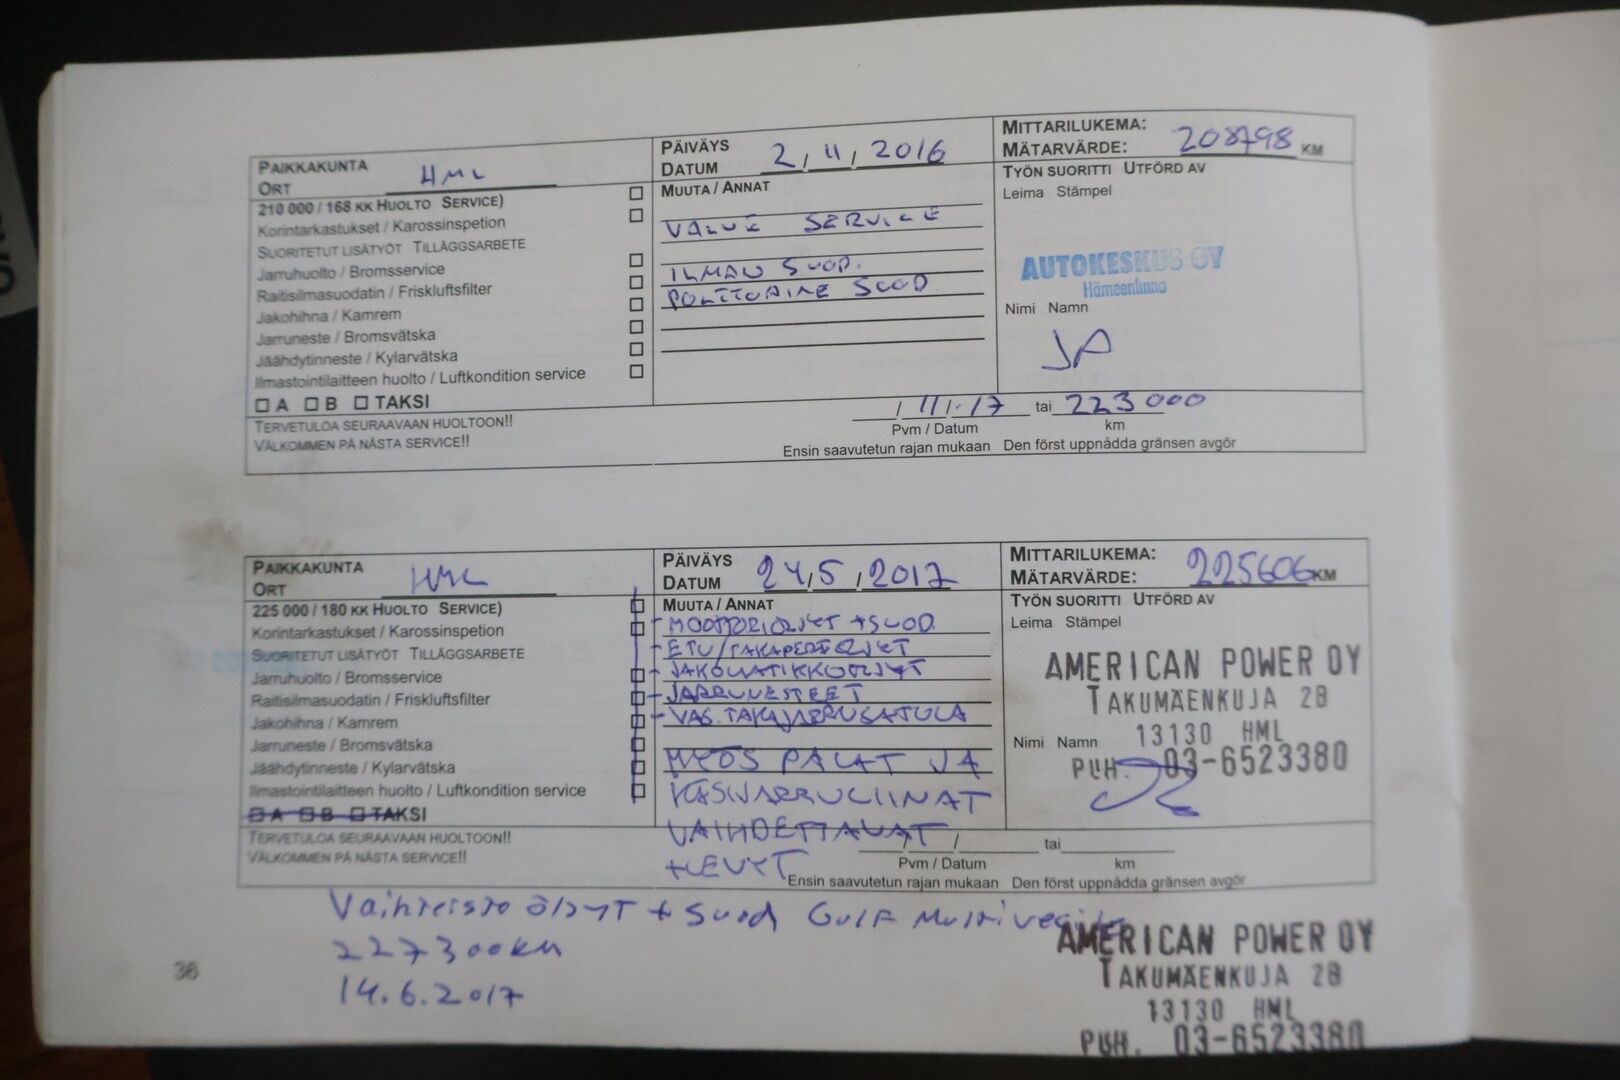 PAIKKAKUNTA
ORT HML
PÄIVÄYS
DATUM 2, 11, 2016
MITTARILUKEMA:
MÄTARVÄRDE: 208798 KM
210 000 / 168 KK HUOLTO SERVICE)
Korintarkastukset / Karossinspetion
SUORITETUT LISÄTYÖT TILLÄGGSARBETE
Jarruhuolto / Bromsservice
Raitisilmasuodatin / Friskluftsfilter
Jakohihna / Kamrem
Jarruneste / Bromsvätska
Jäähdytinneste / Kylarvätska
Ilmastointilaitteen huolto / Luftkondition service
A B TAKSI
MUUTA / ANNAT
VALUE SERVICE
ILMAN SUOD.
POLTTOAINE SUOD
TYÖN SUORITTI UTFÖRD AV
Leima Stämpel
AUTOKESKUS OY
Hämeenlinna
Nimi Namn
JA
TERVETULOA SEURAAVAAN HUOLTOON!!
VÄLKOMMEN PÅ NÄSTA SERVICE!!
/ 11/.17 tai 223 000
Pvm / Datum km
Ensin saavutetun rajan mukaan Den först uppnådda gränsen avgör
PAIKKAKUNTA
ORT HML
PÄIVÄYS
DATUM 24,5,2017
MITTARILUKEMA:
MÄTARVÄRDE: 225606 KM
225 000 / 180 KK HUOLTO SERVICE)
Korintarkastukset / Karossinspetion
SUORITETUT LISÄTYÖT TILLÄGGSARBETE
Jarruhuolto / Bromsservice
Raitisilmasuodatin / Friskluftsfilter
Jakohihna / Kamrem
Jarruneste / Bromsvätska
Jäähdytinneste / Kylarvätska
Ilmastointilaitteen huolto / Luftkondition service
A B TAKSI
MUUTA / ANNAT
- MOOTTORIÖLJYT + SUOD.
- ETU/TAKAPERÄÖLJYT
- JAKOLAATIKKOÖLJYT
- JARRUNESTEET
- VAS. TAKAJARRUSATULA
MYÖS PALAT JA
KÄSIJARRULIINAT
VAIHDETTAVAT
+LEVYT
TYÖN SUORITTI UTFÖRD AV
Leima Stämpel
AMERICAN POWER OY
TAKUMÄENKUJA 2B
13130 HML
Nimi Namn
PUH. 03-6523380
TERVETULOA SEURAAVAAN HUOLTOON!!
VÄLKOMMEN PÅ NÄSTA SERVICE!!
/ / tai
Pvm / Datum km
Ensin saavutetun rajan mukaan Den först uppnådda gränsen avgör
Vaihteisto öljyt + suod Gulf
227300km
14.6.2017
AMERICAN POWER OY
TAKUMÄENKUJA 2B
13130 HML
PUH. 03-6523380
36